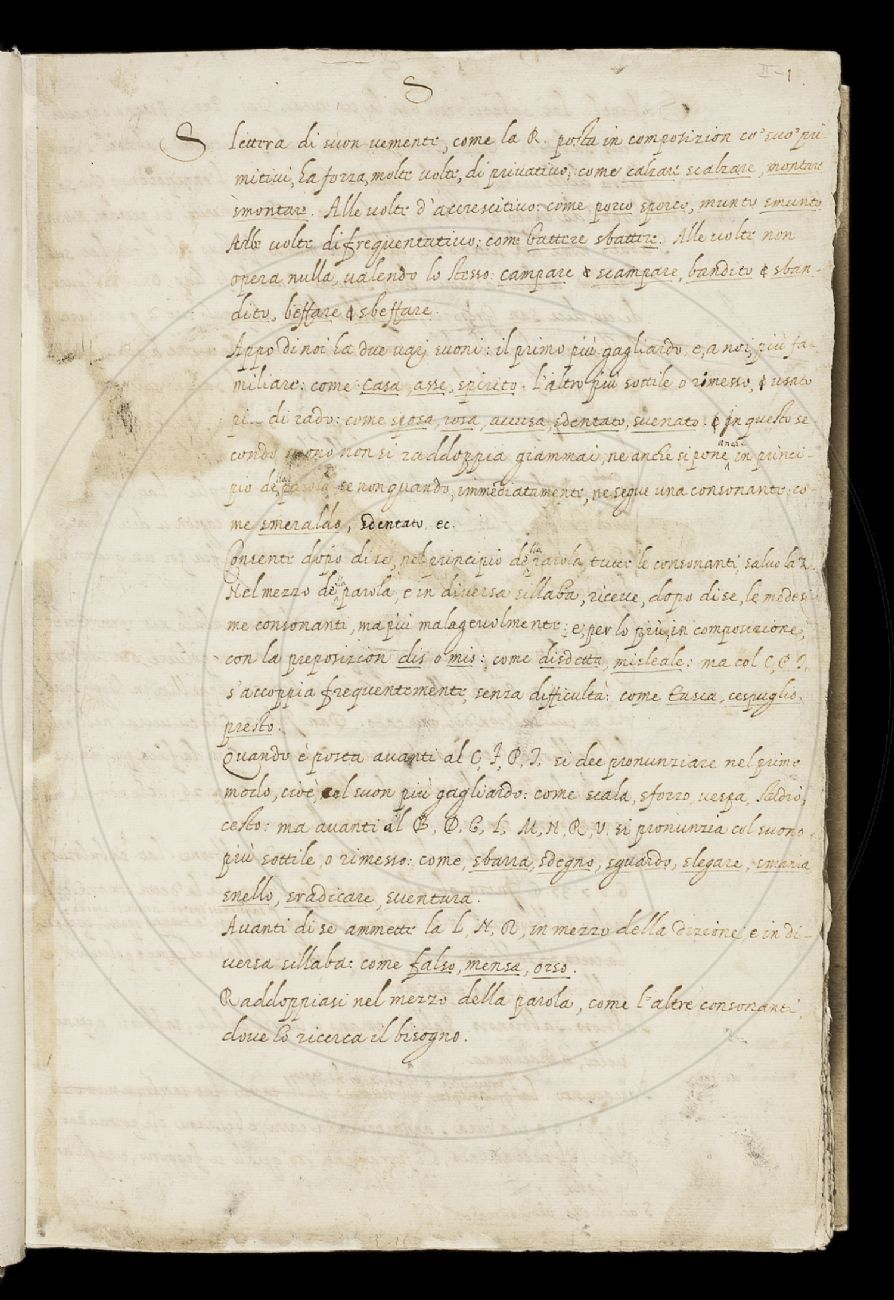 S
II-1
S lettera di suon vemente, come la R. posta in composizion co' suo' pri
mitivi, ha forza, molte volte, di privativo; come calzare scalzare, montare
smontare. Alle volte d'accrescitivo: come porco sporco, munto smunto
Alle volte di frequentativo: come battere sbattere. Alle volte non
opera nulla, valendo lo stesso: campare & scampare, bandito & sban-
dito, beffare & sbeffare.
Appo di noi ha due varj suoni: il primo più gagliardo, e, a noi, più fa-
miliare: come Casa, asse, spirito. l'altro più sottile o rimesso, & usato
di rado: come sposa, rosa, accusa, sdentato, svenato. & in questo se
condo suono non si raddoppia giammai, ne anche si pone anche in princi-
pio della parola se non quando, immediatamente, ne segue una consonante: co-
me smeraldo, sdentato. ec.
Consente dopo di se, nel principio della parola, tutte le consonanti, salvo la Z.
Nel mezzo della parola, e in diversa sillaba, riceve, dopo di se, le medesi-
me consonanti, ma più malagevolmente: e, per lo più, in composizione,
con la preposizion dis o mis: come disdetta, misleale: ma col C, P, T.
s'accoppia frequentemente, senza difficultà: come tasca, cespuglio,
presto.
Quando è posta avanti al C, F, P, T. si dee pronunziare nel primo
modo, cioè, col suon più gagliardo: come scala, sforzo, vespa, stadio,
cesto: ma avanti al B, D, G, L, M, N, R, V. si pronunzia col suono
più sottile, o rimesso: come, sbarra, sdegno, sguardo, slegare, smania
snello, sradicare, sventura.
Avanti di se ammette la L, N, R, in mezzo della dizione, e in di-
versa sillaba: come falso, mensa, orso.
Raddoppiasi nel mezzo della parola, come l'altre consonanti,
dove lo ricerca il bisogno.